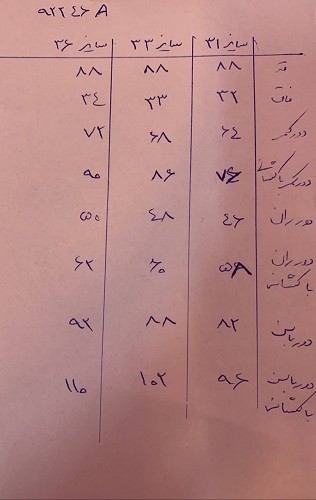 ۹۲۲۴۶ A
سایز ۳۱ سایز ۳۳ سایز ۳۶
قد ۸۸ ۸۸ ۸۸
فاق ۳۲ ۳۳ ۳۴
دور کمر ۶۴ ۶۸ ۷۲
دور کمر با کشسانی ۷۶ ۸۶ ۹۰
دور ران ۴۶ ۴۸ ۵۰
دور ران با کشسانی ۵۸ ۶۰ ۶۲
دور باسن ۸۲ ۸۸ ۹۲
دور باسن با کشسانی ۹۶ ۱۰۲ ۱۱۰